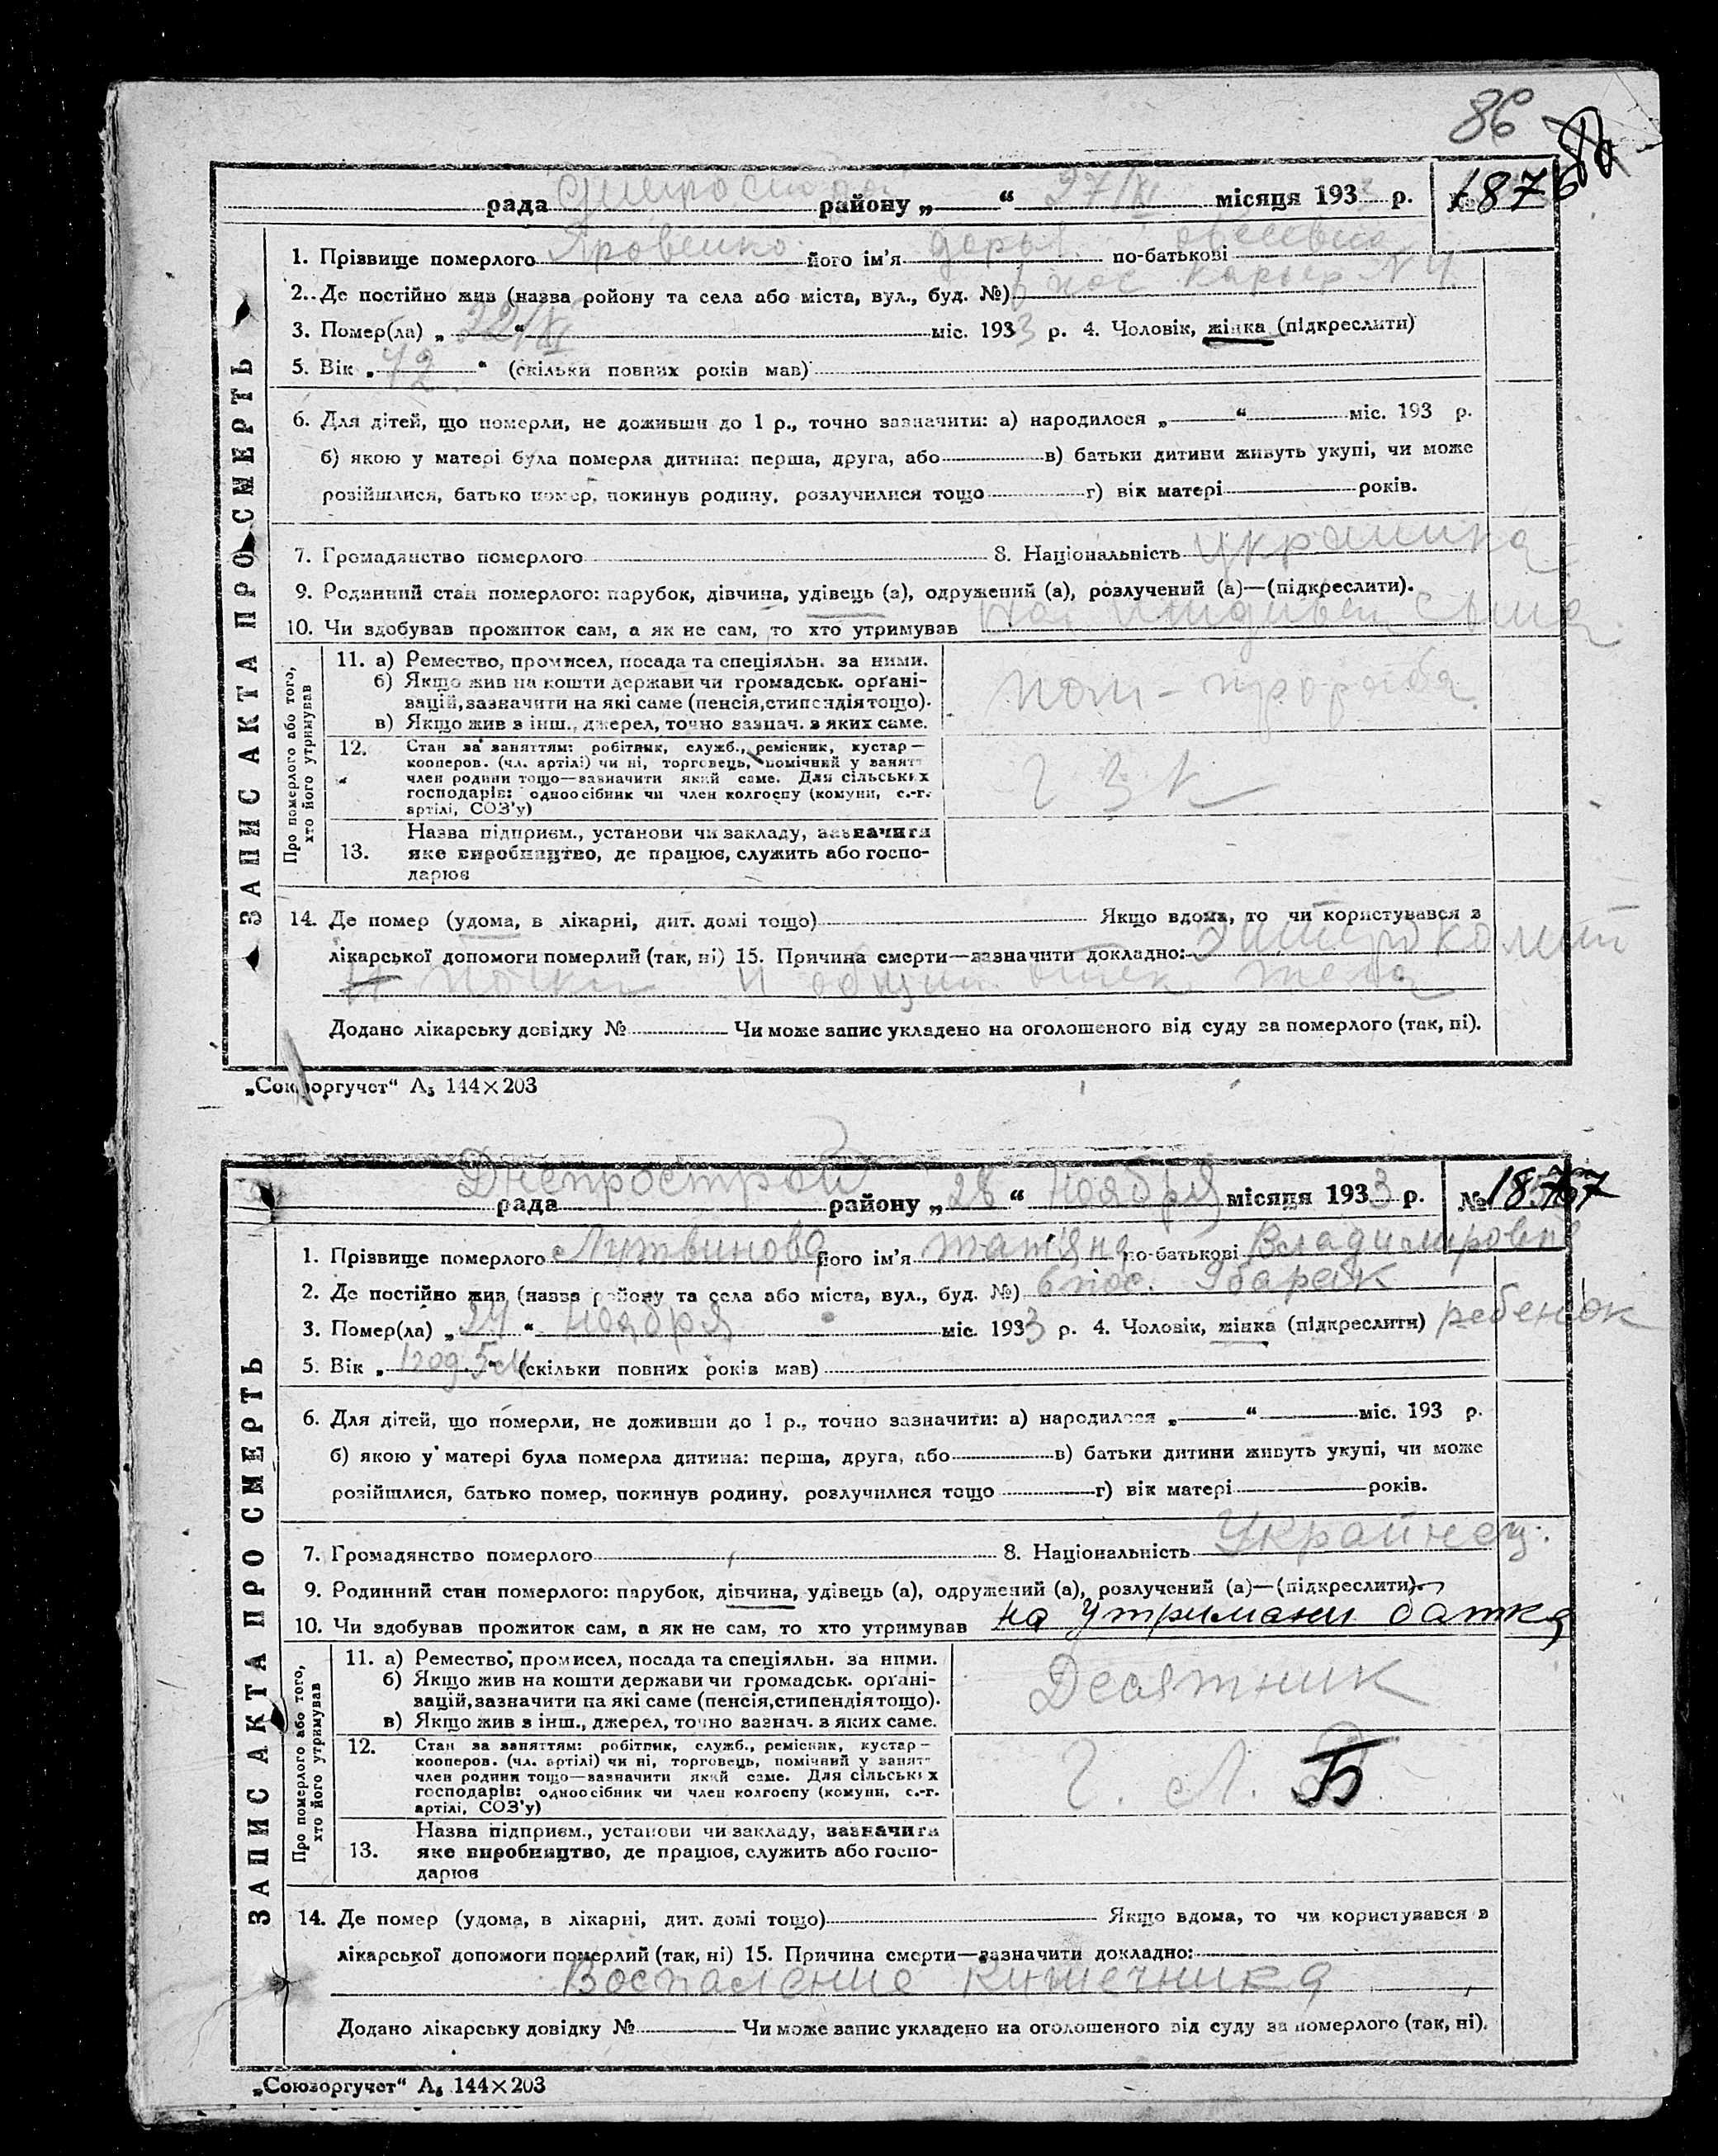 86
рада Днепрострой району „ “ 27/XI місяця 1933 р. № 1876
1. Прізвище померлого Яровенко його ім'я Дарья по-батькові
2. Де постійно жив (назва ройону та села або міста, вул., буд. №) 6 пос карьер N 4
3. Помер(ла) „ 22/XI “ міс. 1933 р. 4. Чоловік, жінка (підкреслити)
5. Вік „ 72 “ (скільки повних років мав)
6. Для дітей, що померли, не доживши до 1 р., точно зазначити: а) народилося „ “ міс. 193 р.
б) якою у матері була померла дитина: перша, друга, або в) батьки дитини живуть укупі, чи може
розійшлися, батько помер, покинув родину, розлучилися тощо г) вік матері років.
7. Громадянство померлого 8. Національність украинка
9. Родинний стан померлого: парубок, дівчина, удівець (а), одружений (а), розлучений (а)—(підкреслити).
10. Чи здобував прожиток сам, а як не сам, то хто утримував на иждивен сына
ЗАПИС АКТА ПРО СМЕРТЬ
Про померлого або того, хто його утримував
11. а) Ремество, промисел, посада та спеціяльн. за ними.
б) Якщо жив на кошти держави чи громадськ. органі-
зацій, зазначити на які саме (пенсія, стипендія тощо).
в) Якщо жив з інш., джерел, точно зазнач. з яких саме.
пом-прораба
12. Стан за заняттям: робітник, служб., ремісник, кустар—
кооперов. (чл. артілі) чи ні, торговець, помічний у занятт
член родини тощо—зазначити який саме. Для сільських
господарів: одноосібник чи член колгоспу (комуни, с.-г.
артілі, СОЗ'у)
13. Назва підприєм., установи чи закладу, зазначити
яке виробництво, де працює, служить або госпо-
дарює
14. Де помер (удома, в лікарні, дит. домі тощо) Якщо вдома, то чи користувався з
лікарської допомоги померлий (так, ні) 15. Причина смерти—зазначити докладно: Энтероколит
и общий отек тела
Додано лікарську довідку № Чи може запис укладено на оголошеного від суду за померлого (так, ні).
„Союзоргучет“ А₅ 144×203
рада Днепрострой району „ 28 “ Ноября місяця 1933 р. № 1877
1. Прізвище померлого Литвинова його ім'я татяна по-батькові Владимировн
2. Де постійно жив (назва району та села або міста, вул., буд. №) 6 пос. 9 барак
3. Помер(ла) „ 24 “ Ноября міс. 1933 р. 4. Чоловік, жінка (підкреслити) ребенок
5. Вік „ 1 год. 5 м “ (скільки повних років мав)
6. Для дітей, що померли, не доживши до 1 р., точно зазначити: а) народилося „ “ міс. 193 р.
б) якою у матері була померла дитина: перша, друга, або в) батьки дитини живуть укупі, чи може
розійшлися, батько помер, покинув родину, розлучилися тощо г) вік матері років.
7. Громадянство померлого 8. Національність Украйнец.
9. Родинний стан померлого: парубок, дівчина, удівець (а), одружений (а), розлучений (а)—(підкреслити).
10. Чи здобував прожиток сам, а як не сам, то хто утримував на утримани батка
ЗАПИС АКТА ПРО СМЕРТЬ
Про померлого або того, хто його утримував
11. а) Ремество, промисел, посада та спеціяльн. за ними.
б) Якщо жив на кошти держави чи громадськ. органі-
зацій, зазначити на які саме (пенсія, стипендія тощо).
в) Якщо жив з інш., джерел, точно зазнач. з яких саме.
Десятник
12. Стан за заняттям: робітник, служб., ремісник, кустар—
кооперов. (чл. артілі) чи ні, торговець, помічний у занятт
член родини тощо—зазначити який саме. Для сільських
господарів: одноосібник чи член колгоспу (комуни, с.-г.
артілі, СОЗ'у)
Г. Л. Б
13. Назва підприєм., установи чи закладу, зазначити
яке виробництво, де працює, служить або госпо-
дарює
14. Де помер (удома, в лікарні, дит. домі тощо) Якщо вдома, то чи користувався з
лікарської допомоги померлий (так, ні) 15. Причина смерти—зазначити докладно:
Воспаление кишечника
Додано лікарську довідку № Чи може запис укладено на оголошеного від суду за померлого (так, ні).
„Союзоргучет“ А₅ 144×203